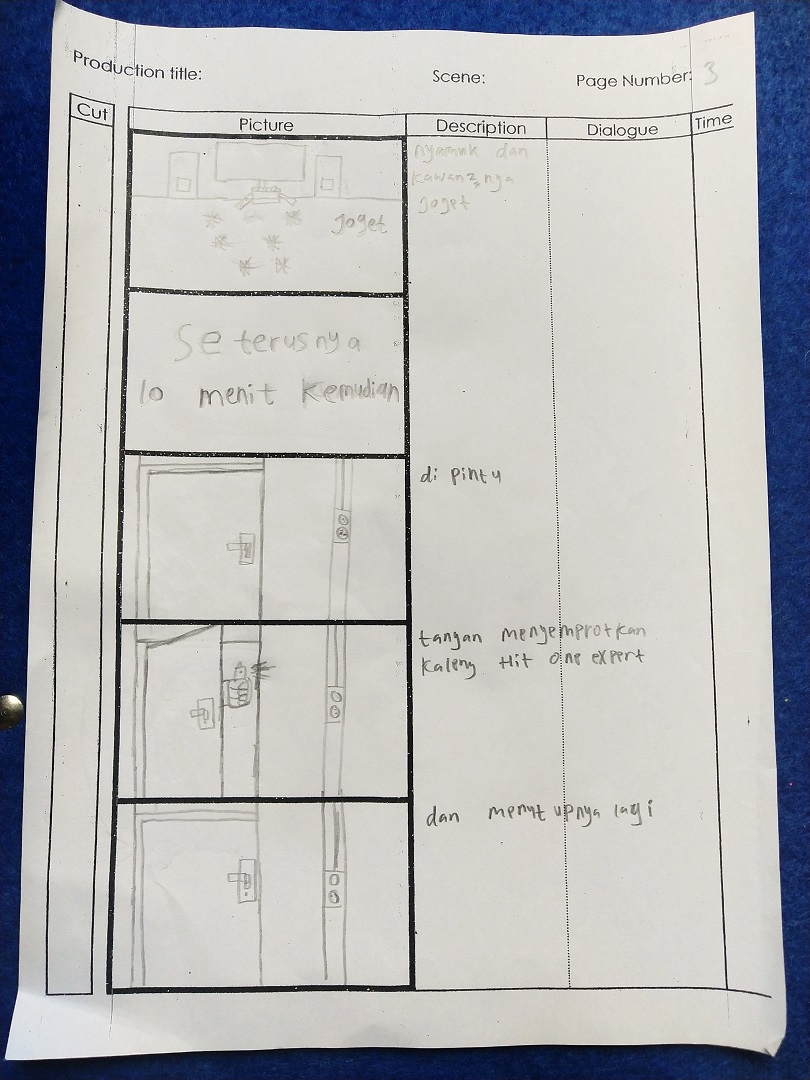 Production title:
Scene:
Page Number: 3
Cut
Picture
Description
Dialogue
Time
nyamuk dan
kawan2nya
joget
Joget
Seterusnya
10 menit kemudian
di pintu
tangan menyemprotkan
kaleng Hit one expert
dan menutupnya lagi